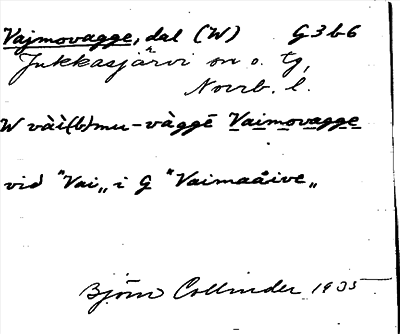 Vajmovagge, dal (W) G3b6
Jukkasjärvi sn o. tg,
Norrb. l.
W vàì(b)mu-vàggē Vaimovagge
vid "Vai„ i G "Vaimaåive„
Björn Collinder 1935